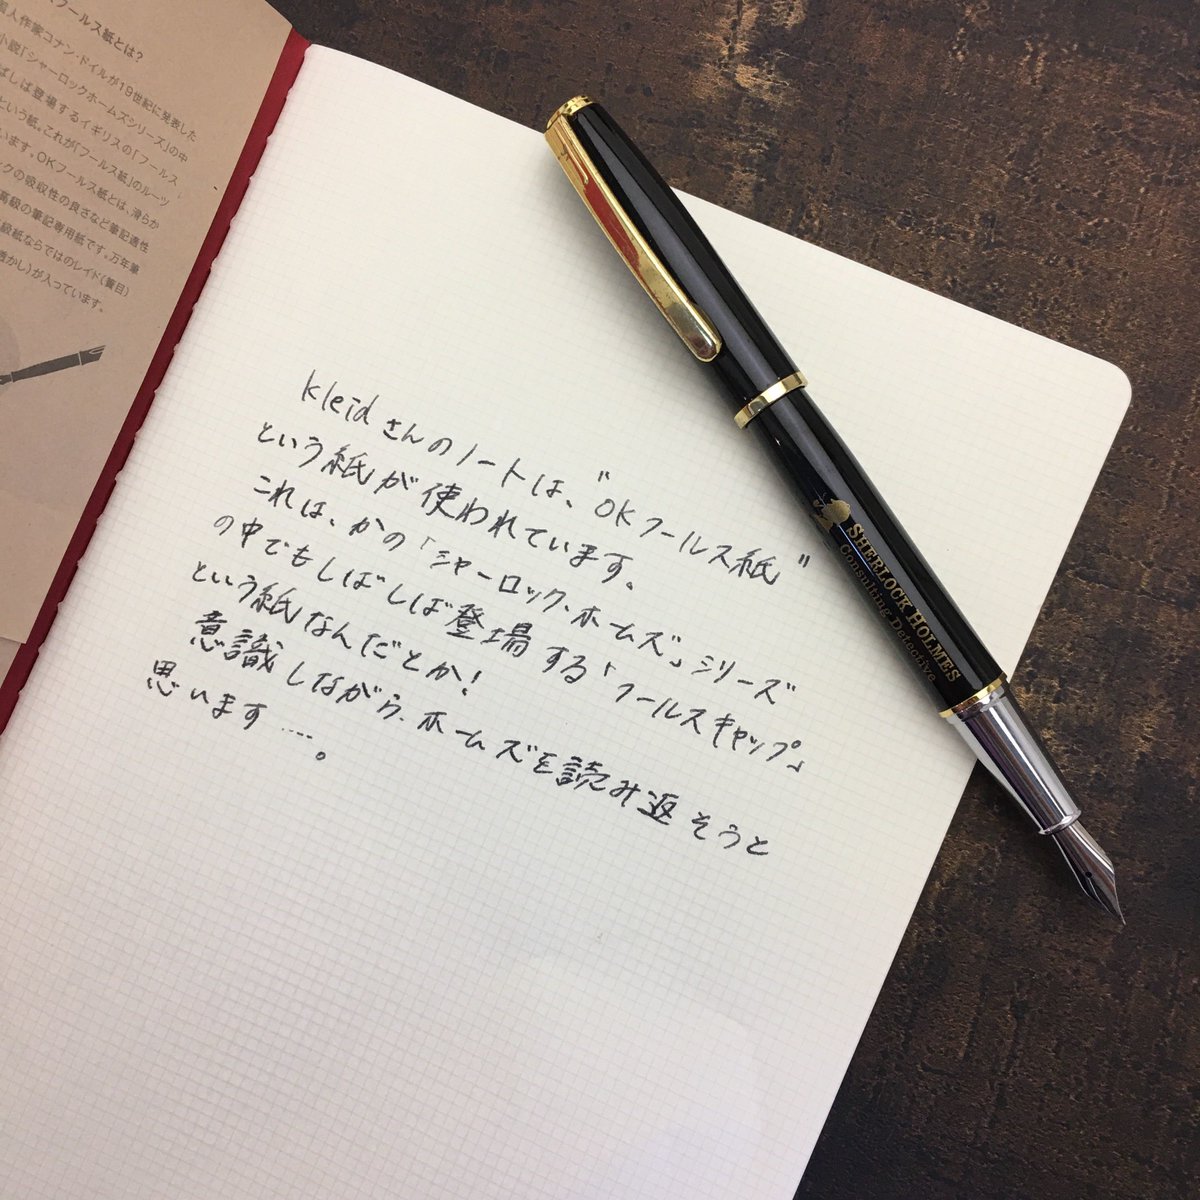 フールス紙とは?
人作家コナン・ドイルが19世紀に発表した
小説「シャーロックホームズシリーズ」の中
ばしば登場するイギリスの「フールス
という紙。これが「フールス紙」のルーツ
います。OKフールス紙とは、滑らか
クの吸収性の良さなど筆記適性
高級の筆記専用紙です。万年筆
級紙ならではのレイド(簀目)
透かし)が入っています。
kleidさんのノートは、"OKフールス紙"
という紙が使われています。
これは、かの「シャーロック・ホームズ」シリーズ
の中でもしばしば登場する「フールスキャップ」
という紙なんだとか!
意識しながら、ホームズを読み返そうと
思います……。
SHERLOCK HOLMES
Consulting Detective